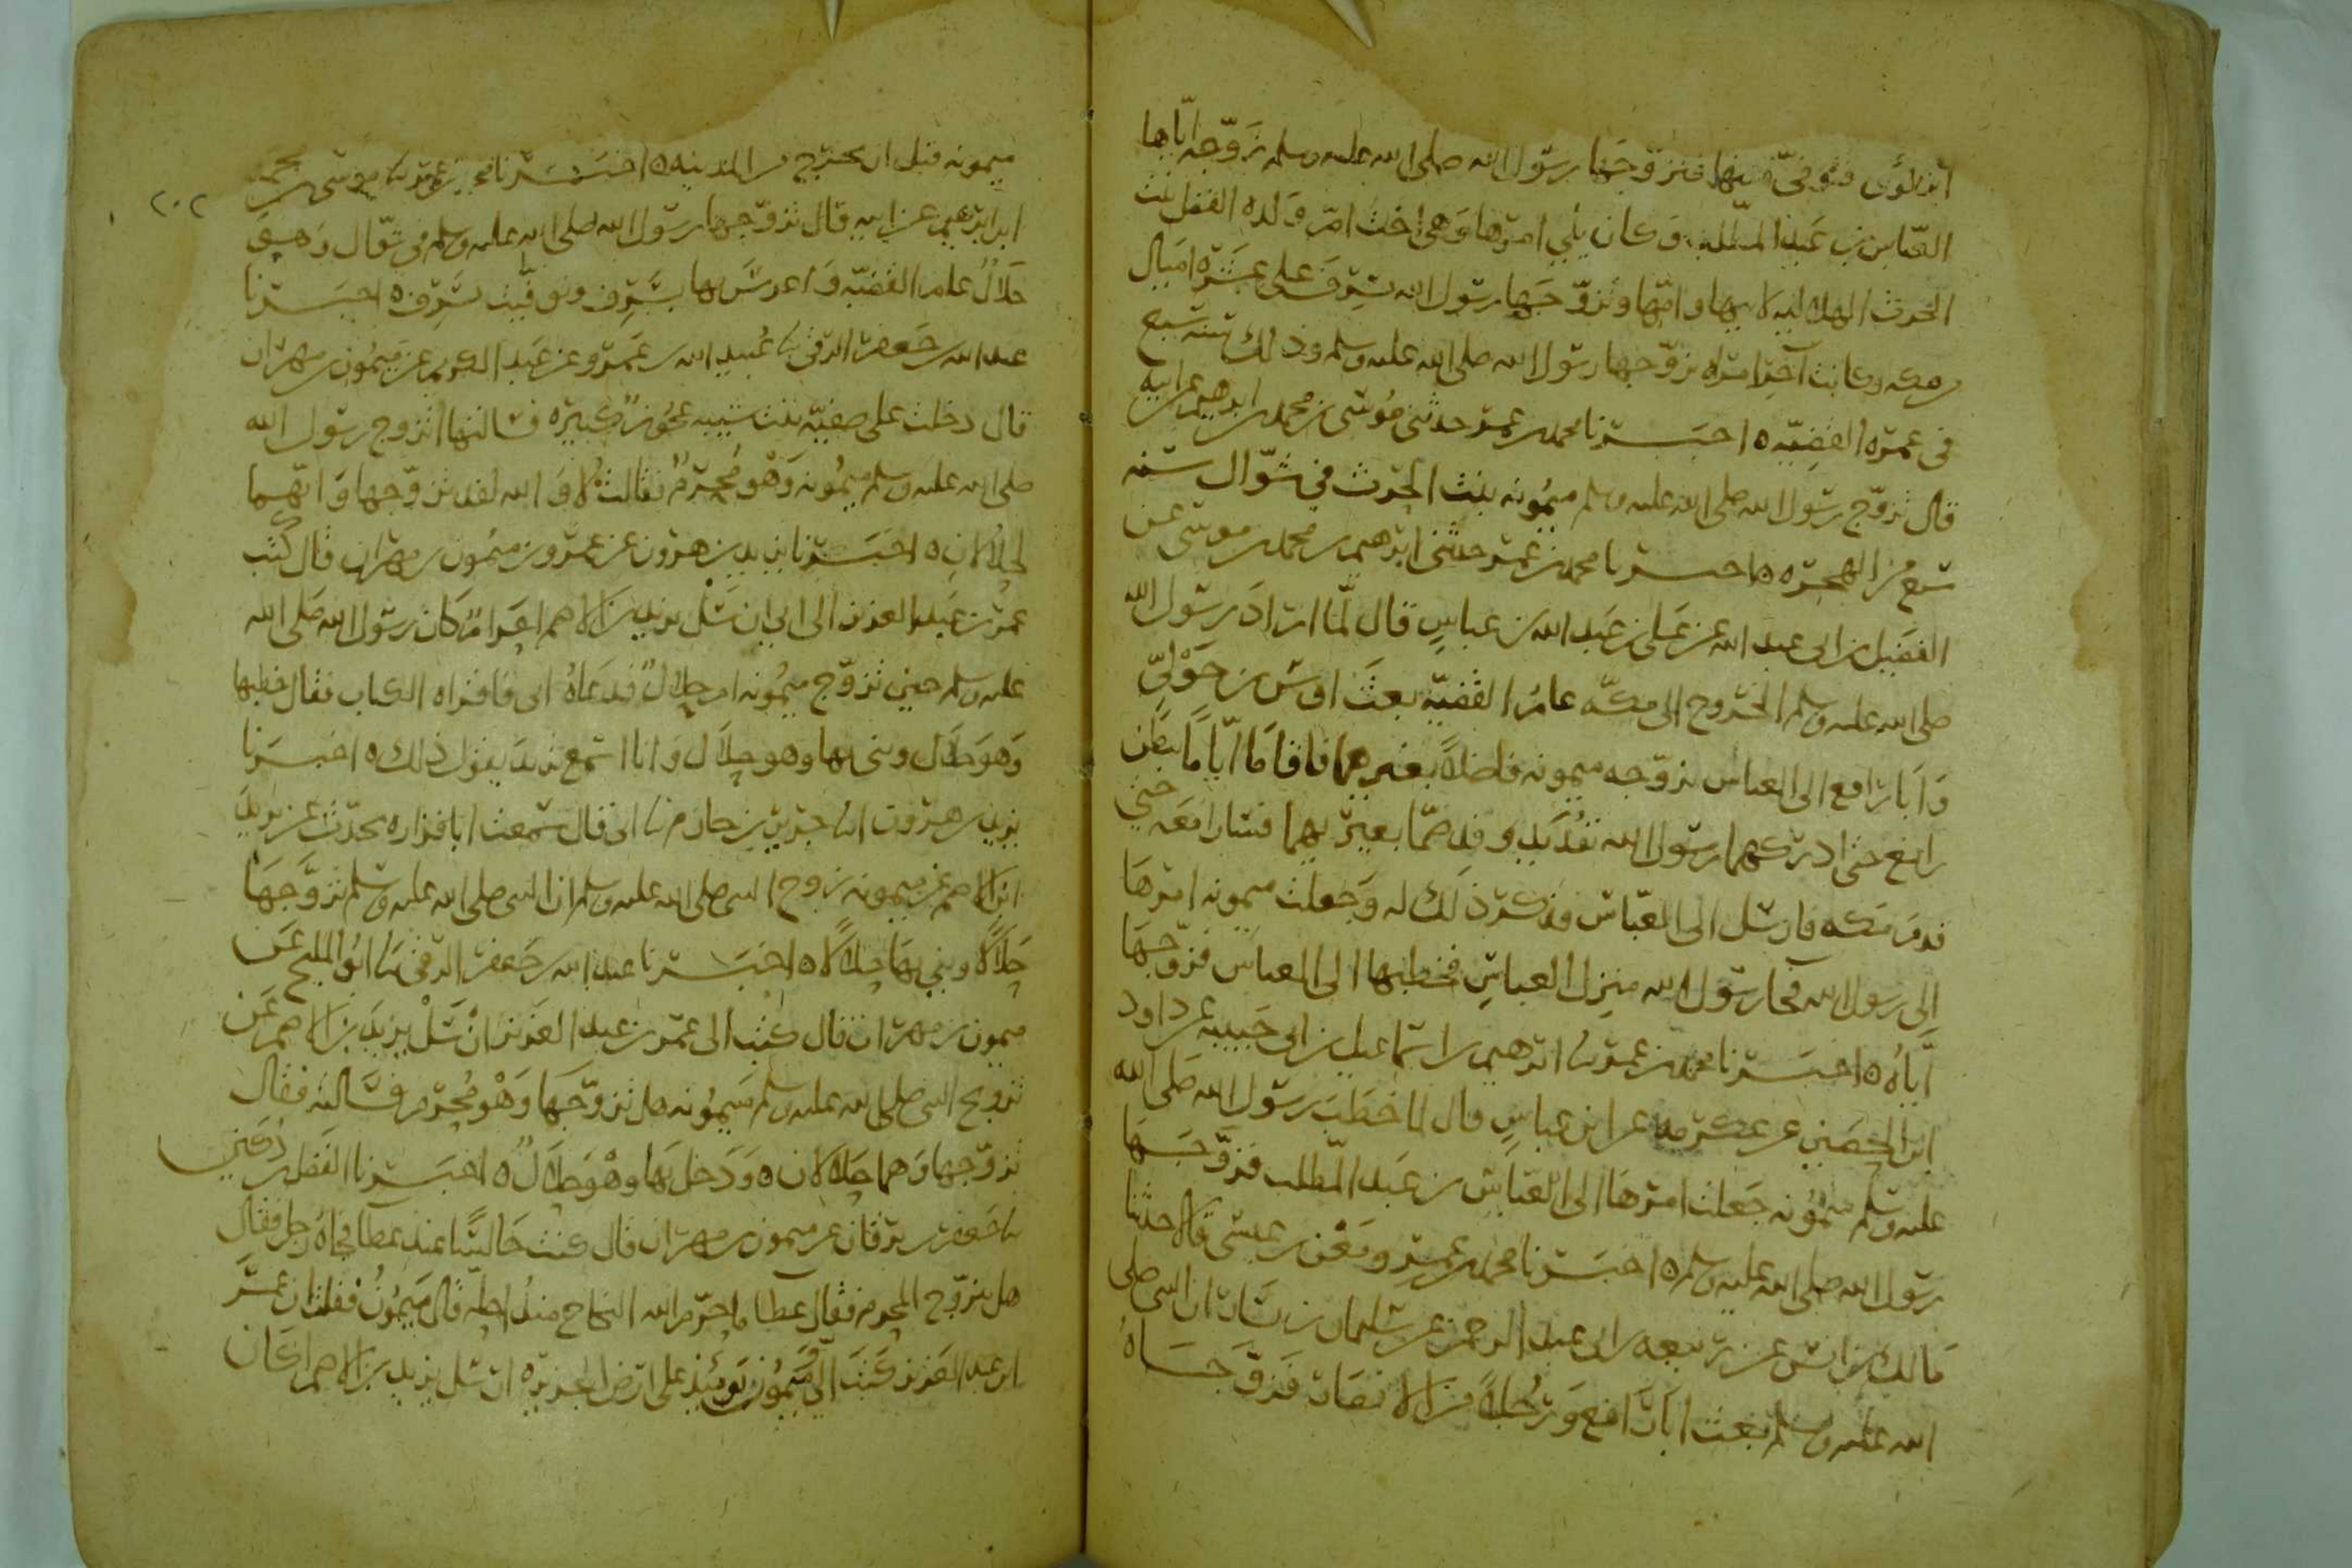 ابن لؤى فتوفى عنها فتزوجها رسول الله صلى الله عليه وسلم زوجه اياها
العباس بن عبد المطلب وكان يلي امرها وهي اخت ام ولده الفضل بنت
الحرث الهلاليه لابيها وامها وتزوجها رسول الله بسرف على عشرة اميال
من مكه وكانت آخر امراه تزوجها رسول الله صلى الله عليه وسلم وذلك سنه سبع
في عمره القضيه ه اخبرنا محمد بن عمر حدثني موسى بن محمد بن ابرهيم عن ابيه
قال تزوج رسول الله صلى الله عليه وسلم ميمونه بنت الحرث في شوال سنه
سبع من الهجره ه اخبرنا محمد بن عمر حدثني ابرهيم بن محمد بن موسى عن
الفضيل بن ابي عبد الله عن علي بن عبد الله بن عباس قال لما اراد رسول الله
صلى الله عليه وسلم الخروج الى مكه عام القضيه بعث اوس بن خولي
وابا رافع الى العباس يزوجه ميمونه فاضلا بعيريهما فاقاما اياما ببطن
رابغ حتى ادركهما رسول الله بقديد وقد ضما بعيريهما فسارا معه حتى
قدم مكه فارسل الى العباس فذكر ذلك له وجعلت ميمونه امرها
الى رسول الله فجا رسول الله منزل العباس فخطبها الى العباس فزوجها
اياه ه اخبرنا محمد بن عمر نا ابرهيم بن اسماعيل بن ابي حبيبه عن داود
ابن الحصين عن عكرمه عن ابن عباس قال لما خطب رسول الله صلى الله
عليه وسلم ميمونه جعلت امرها الى العباس بن عبد المطلب فزوجها
رسول الله صلى الله عليه وسلم ه اخبرنا محمد بن عمر ومعن بن عيسى قالا حدثنا
مالك بن انس عن ربيعه بن ابي عبد الرحمن عن سليمان بن يسار ان النبي صلى
الله عليه وسلم بعث ابا رافع ورجلا من الانصار فزوجاه
ميمونه قبل ان يخرج من المدينه ه اخبرنا محمد بن عمر نا موسى بن محمد
٢٠٢
ابن ابرهيم عن ابيه قال تزوجها رسول الله صلى الله عليه وسلم في شوال وهي
حلال عام القضيه واعرس بها بسرف وتوفيت بسرف ه اخبرنا
عبد الله بن جعفر الرقي نا عبيد الله بن عمرو عن عبد الكريم عن ميمون بن مهران
قال دخلت على صفيه بنت شيبه عجوز كبيره فسالتها اتزوج رسول الله
صلى الله عليه وسلم ميمونه وهو محرم فقالت لا والله لقد تزوجها وانهما
لحلالان ه اخبرنا يزيد بن هرون عن عمرو بن ميمون بن مهران قال كتب
عمر بن عبد العزيز الى ابي ان سل يزيد بن الاصم احراما كان رسول الله صلى الله
عليه وسلم حين تزوج ميمونه ام حلال فدعاه ابي فاقراه الكتاب فقال خطبها
وهو حلال وبنى بها وهو حلال وانا اسمع يزيد يقول ذلك ه اخبرنا
يزيد بن هرون انا جرير بن حازم نا ابي قال سمعت ابا فزاره يحدث عن يزيد
ابن الاصم عن ميمونه زوج النبي صلى الله عليه وسلم ان النبي صلى الله عليه وسلم تزوجها
حلالا وبنى بها حلالا ه اخبرنا عبد الله بن جعفر الرقي نا ابو المليح عن
ميمون بن مهران قال كتب الى عمر بن عبد العزيز ان سل يزيد بن الاصم عن
تزويج النبي صلى الله عليه وسلم ميمونه هل تزوجها وهو محرم فسالته فقال
تزوجها وهما حلالان ه ودخل بها وهو حلال ه اخبرنا الفضل بن دكين
نا جعفر بن برقان عن ميمون بن مهران قال كنت جالسا عند عطا فجاه رجل فقال
هل يتزوج المحرم فقال عطا ما حرم الله النكاح منذ احله قال ميمون فقلت ان عمر
ابن عبد العزيز كتب الي وميمون يومئذ على ارض الجزيره ان سل يزيد بن الاصم اكان